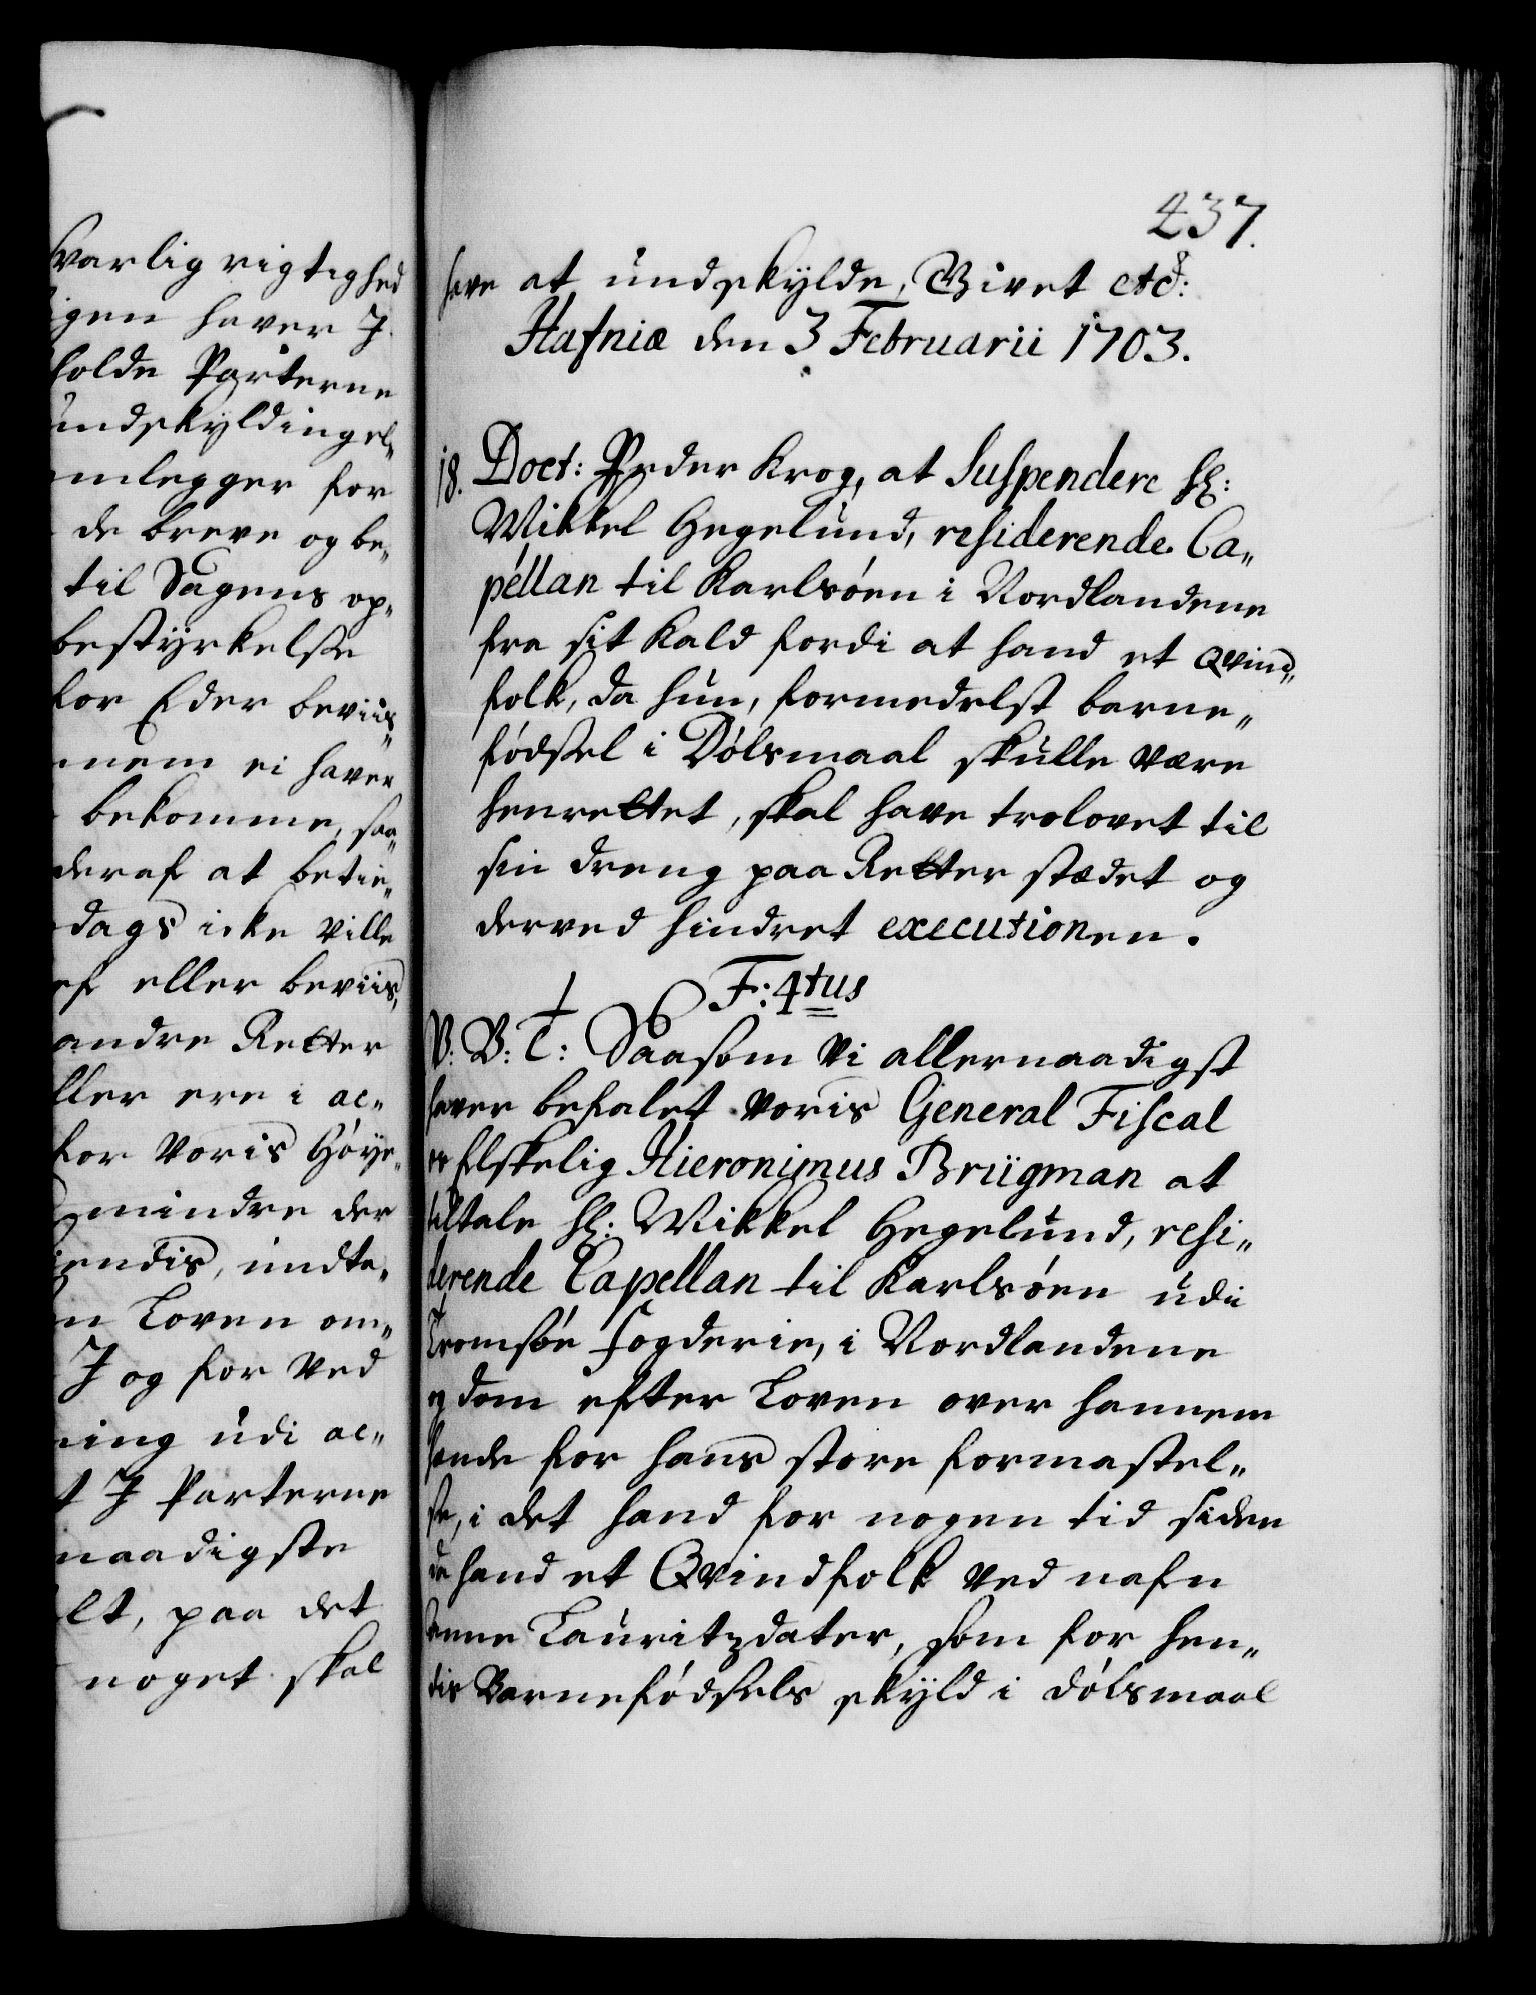 varlig rigtighed
igen haver J
holde Parterne
undskyldingel„
mlegger for
de breve og be„
til Sagens op„
bestyrkelse
for Eder beviis„
nnem ei haver
bekomme, saa„
deraf at betie„
dags icke ville
ef eller beviis,
andre Retter
ller ere i al„
for Voris Høye„
mindre der
iendis, undta„
n Loven om„
J og for Ved
ing udi al„
t J Parterne
naadigste
lt, paa det
noget skal
437.
have at undskylde, Givet etc:
Hafniæ den 3 Februarii 1703.
18. Doct: Peder Krog, at Suspendere Hr:
Mikkel Hegelund, residerende Ca„
pellan til Karlsöen i Nordlandene
fra sit Kald fordi at hand et qvind„
folk, da hun, formedelst barne„
födsel i Dölsmaal skulle være
henrettet, skal have trolovet til
sin dreng paa Retter stædet og
derved hindret executionen.
F: 4tus
V. G: T: Saasom Vi allernaadigst
haver befalet voris General Fiscal
os Elskelig Hieronimus Brügman at
tiltale Hr: Mikkel Hegelund, resi„
derende Capellan til Karlsöen udi
Tromsöe Fogderie, i Nordlandene
og dom efter Loven over hannem
hende for hans store formastel„
se, i det hand for nogen tid siden
da hand et Qvindfolk ved nafn
Lauritzdater, som for hen„
dis Barnefödsels skyld i dölsmaal